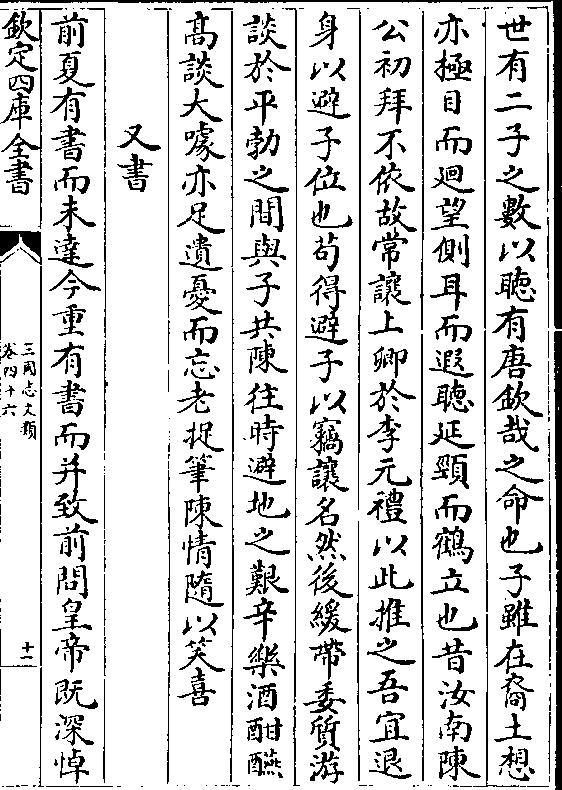 世有二子之數以聽有唐欽哉之命也子雖在裔土想
亦極目而迴望側耳而遐聽延頸而鶴立也昔汝南陳
公初拜不依故常讓上卿於李元禮以此推之吾宜退
身以避子位也苟得避子以竊讓名然後緩帶委質游
談於平勃之間與子共陳往時避地之艱辛樂酒酣醼
髙談大噱亦足遺憂而忘老捉筆陳情隨以笑喜
又書
前夏有書而未達今重有書而并致前問皇帝既深悼
欽定四庫全書
三國志文類
卷四十六
十一